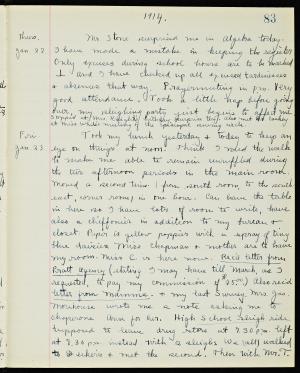 1914. 83
Thurs. Mr. Stone surprised me in algebra today.
Jan 22 I have made a mistake in keeping the register
Only excuses during school hours are to be marked
⊥ and I have checked up all excused tardinesses
& absences that way. Prayermeeting in pro. Very
good attendance. Took a little nap before going
out, my neighboring girls begins to affect me
at
Fri Took my lunch yesterday & today to keep an
Jan 23 eye on things at noon. Think I rode the walk
to make me able to remain unruffled during
the two afternoon periods in the main room.
Moved a second time. From south room to the south
east, corner room, in one hour. Can have the table
in here so I have lots of room to write, have
also a chiffonier in addition to my bureau &
closet. Paper is yellow poppies with a spray of tiny
blue daisies. Miss Chapman & mother are to have
my room. Miss C. is here now. Rec'd letter from
Pratt Agency stating I may have till March, as I
requested, to pay my commission of $25.00. Also rec'd
letter from Mamma & my last Surrey. Mrs. Jas.
Morehouse wrote me a note asking me to
chaperone Ann for her. High School sleigh ride
supposed to leave drug store at 7.30 p.m. left
at 8.30 p.m. instead with 2 sleighs. We all walked
to & met the second. Then with Mr. T.